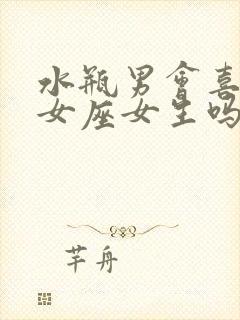 水瓶男會喜
女座女生吗
芊舟